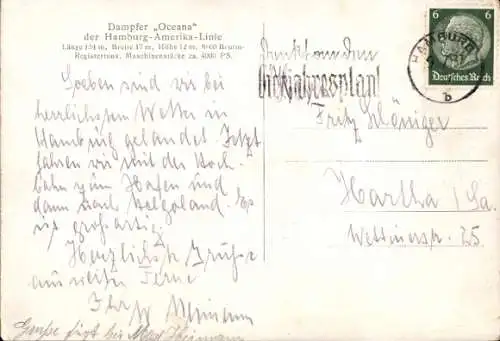 Dampfer „Oceana“
der Hamburg-Amerika-Linie
Länge 151 m, Breite 17 m, Höhe 12 m, 8000 Brutto-
Registertons, Maschinenstärke ca. 4000 PS.
Soeben sind wir bei
herrlichstem Wetter in
Hamburg gelandet. Jetzt
fahren wir mit der Hoch-
bahn zum Hafen und
dann nach Helgoland. Es
ist großartig.
Herzlichste Grüße
aus weiter Ferne
Grüße
denkt an den
Vierjahresplan!
6 6
Deutsches Reich
HAMBURG
b
Fritz
Hartha i/Sa.
Wettinerstr. 25